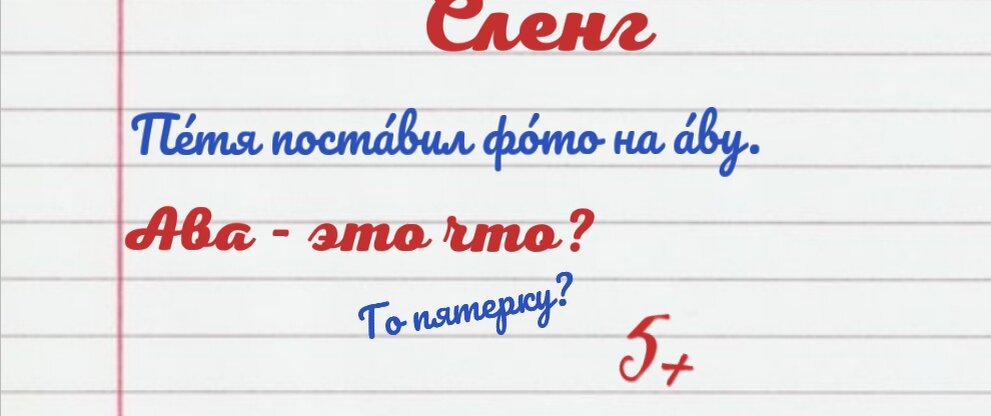 Сленг
Пе́тя поста́вил фо́то на а́ву.
Ава - это что?
То пятерку?
5+